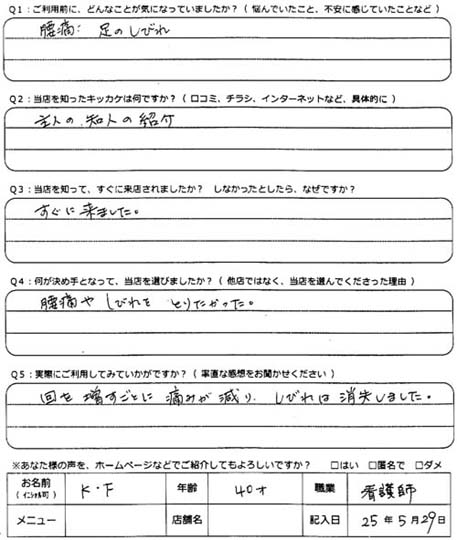 Q1：ご利用前に、どんなことが気になっていましたか？（ 悩んでいたこと、不安に感じていたことなど ）
腰痛： 足のしびれ
Q2：当店を知ったキッカケは何ですか？（ 口コミ、チラシ、インターネットなど、具体的に ）
主人の、知人の紹介
Q3：当店を知って、すぐに来店されましたか？ しなかったとしたら、なぜですか？
すぐに来ました。
Q4：何が決め手となって、当店を選びましたか？（ 他店ではなく、当店を選んでくださった理由 ）
腰痛や しびれを とりたかった。
Q5：実際にご利用してみていかがですか？（ 率直な感想をお聞かせください ）
回を 増すごとに 痛みが 減り、しびれは 消失しました。
※あなた様の声を、ホームページなどでご紹介してもよろしいですか？ □はい □匿名で □ダメ
お名前（イニシャル可） K・F 年齢 40才 職業 看護師
メニュー 店舗名 記入日 25年5月29日